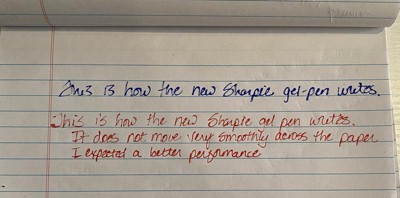 This is how the new Sharpie gel-pen writes.
This is how the new Sharpie gel pen writes.
It does not move very smoothly across the paper
I expected a better performance